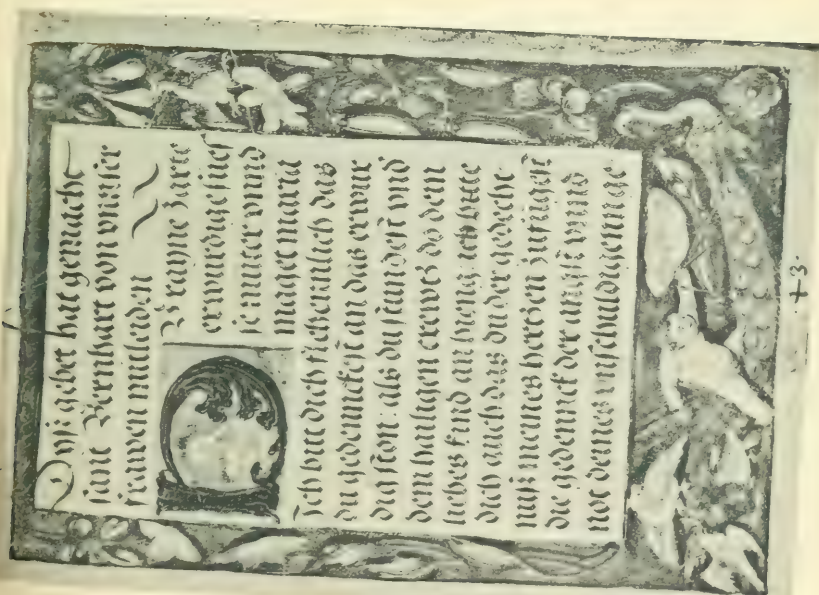 Diß gebet hat gemacht
sant Bernhart von vnnser
frawen mitleiden
O rayne zarte
erwirdige sües
se mutter vnnd
maget maria
Ich bitt dich fleissennlich das
du gedennckest an das erwir
dig ston· als du stundest vnd
dem hailigen crewtz do dein
liebes kind an hieng· ich bitte
dich auch das du der gedecht
nuß meines hertzen zufügest
die gedennck der angst vnns
not deines vnschuldigennge
+3·